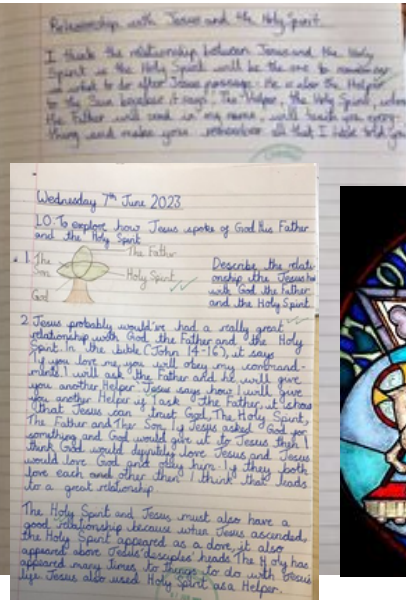 Relationship with Jesus and the Holy Spirit
I think the relationship between Jesus and the Holy
Spirit is the Holy Spirit will be the one to
what to do after Jesus passage. He is also the Helper
to the Son because it says "The Helper, the Holy Spirit, whom
the Father will send in my name, will teach you every-
thing and make you remember all that I have told you
Wednesday 7th June 2023
LO: To explore how Jesus spoke of God His Father
and the Holy Spirit
1.
The Father
The
Son
Holy Spirit
God
Describe the relati-
onship the Jesus has
with God the Father
and the Holy Spirit
2 Jesus probably would've had a really great
relationship with God the Father and the Holy
Spirit. In the bible (John 14-16), it says
If you love me you will obey my command-
ments. I will ask the Father and he will give
you another Helper. Jesus says how I will give
you another Helper if I ask the Father, it shows
that Jesus can trust God, The Holy Spirit,
The Father and The Son. If Jesus asked God for
something and God would give it to Jesus then I
think God would definitely love Jesus and Jesus
would love God and obey him. If they both
love each and other then I think that leads
to a great relationship.
The Holy Spirit and Jesus must also have a
good relationship because when Jesus ascended,
the Holy Spirit appeared as a dove, it also
appeared above Jesus' disciples heads The Holy has
appeared many times to things to do with Jesus'
life Jesus also used Holy Spirit as a Helper.